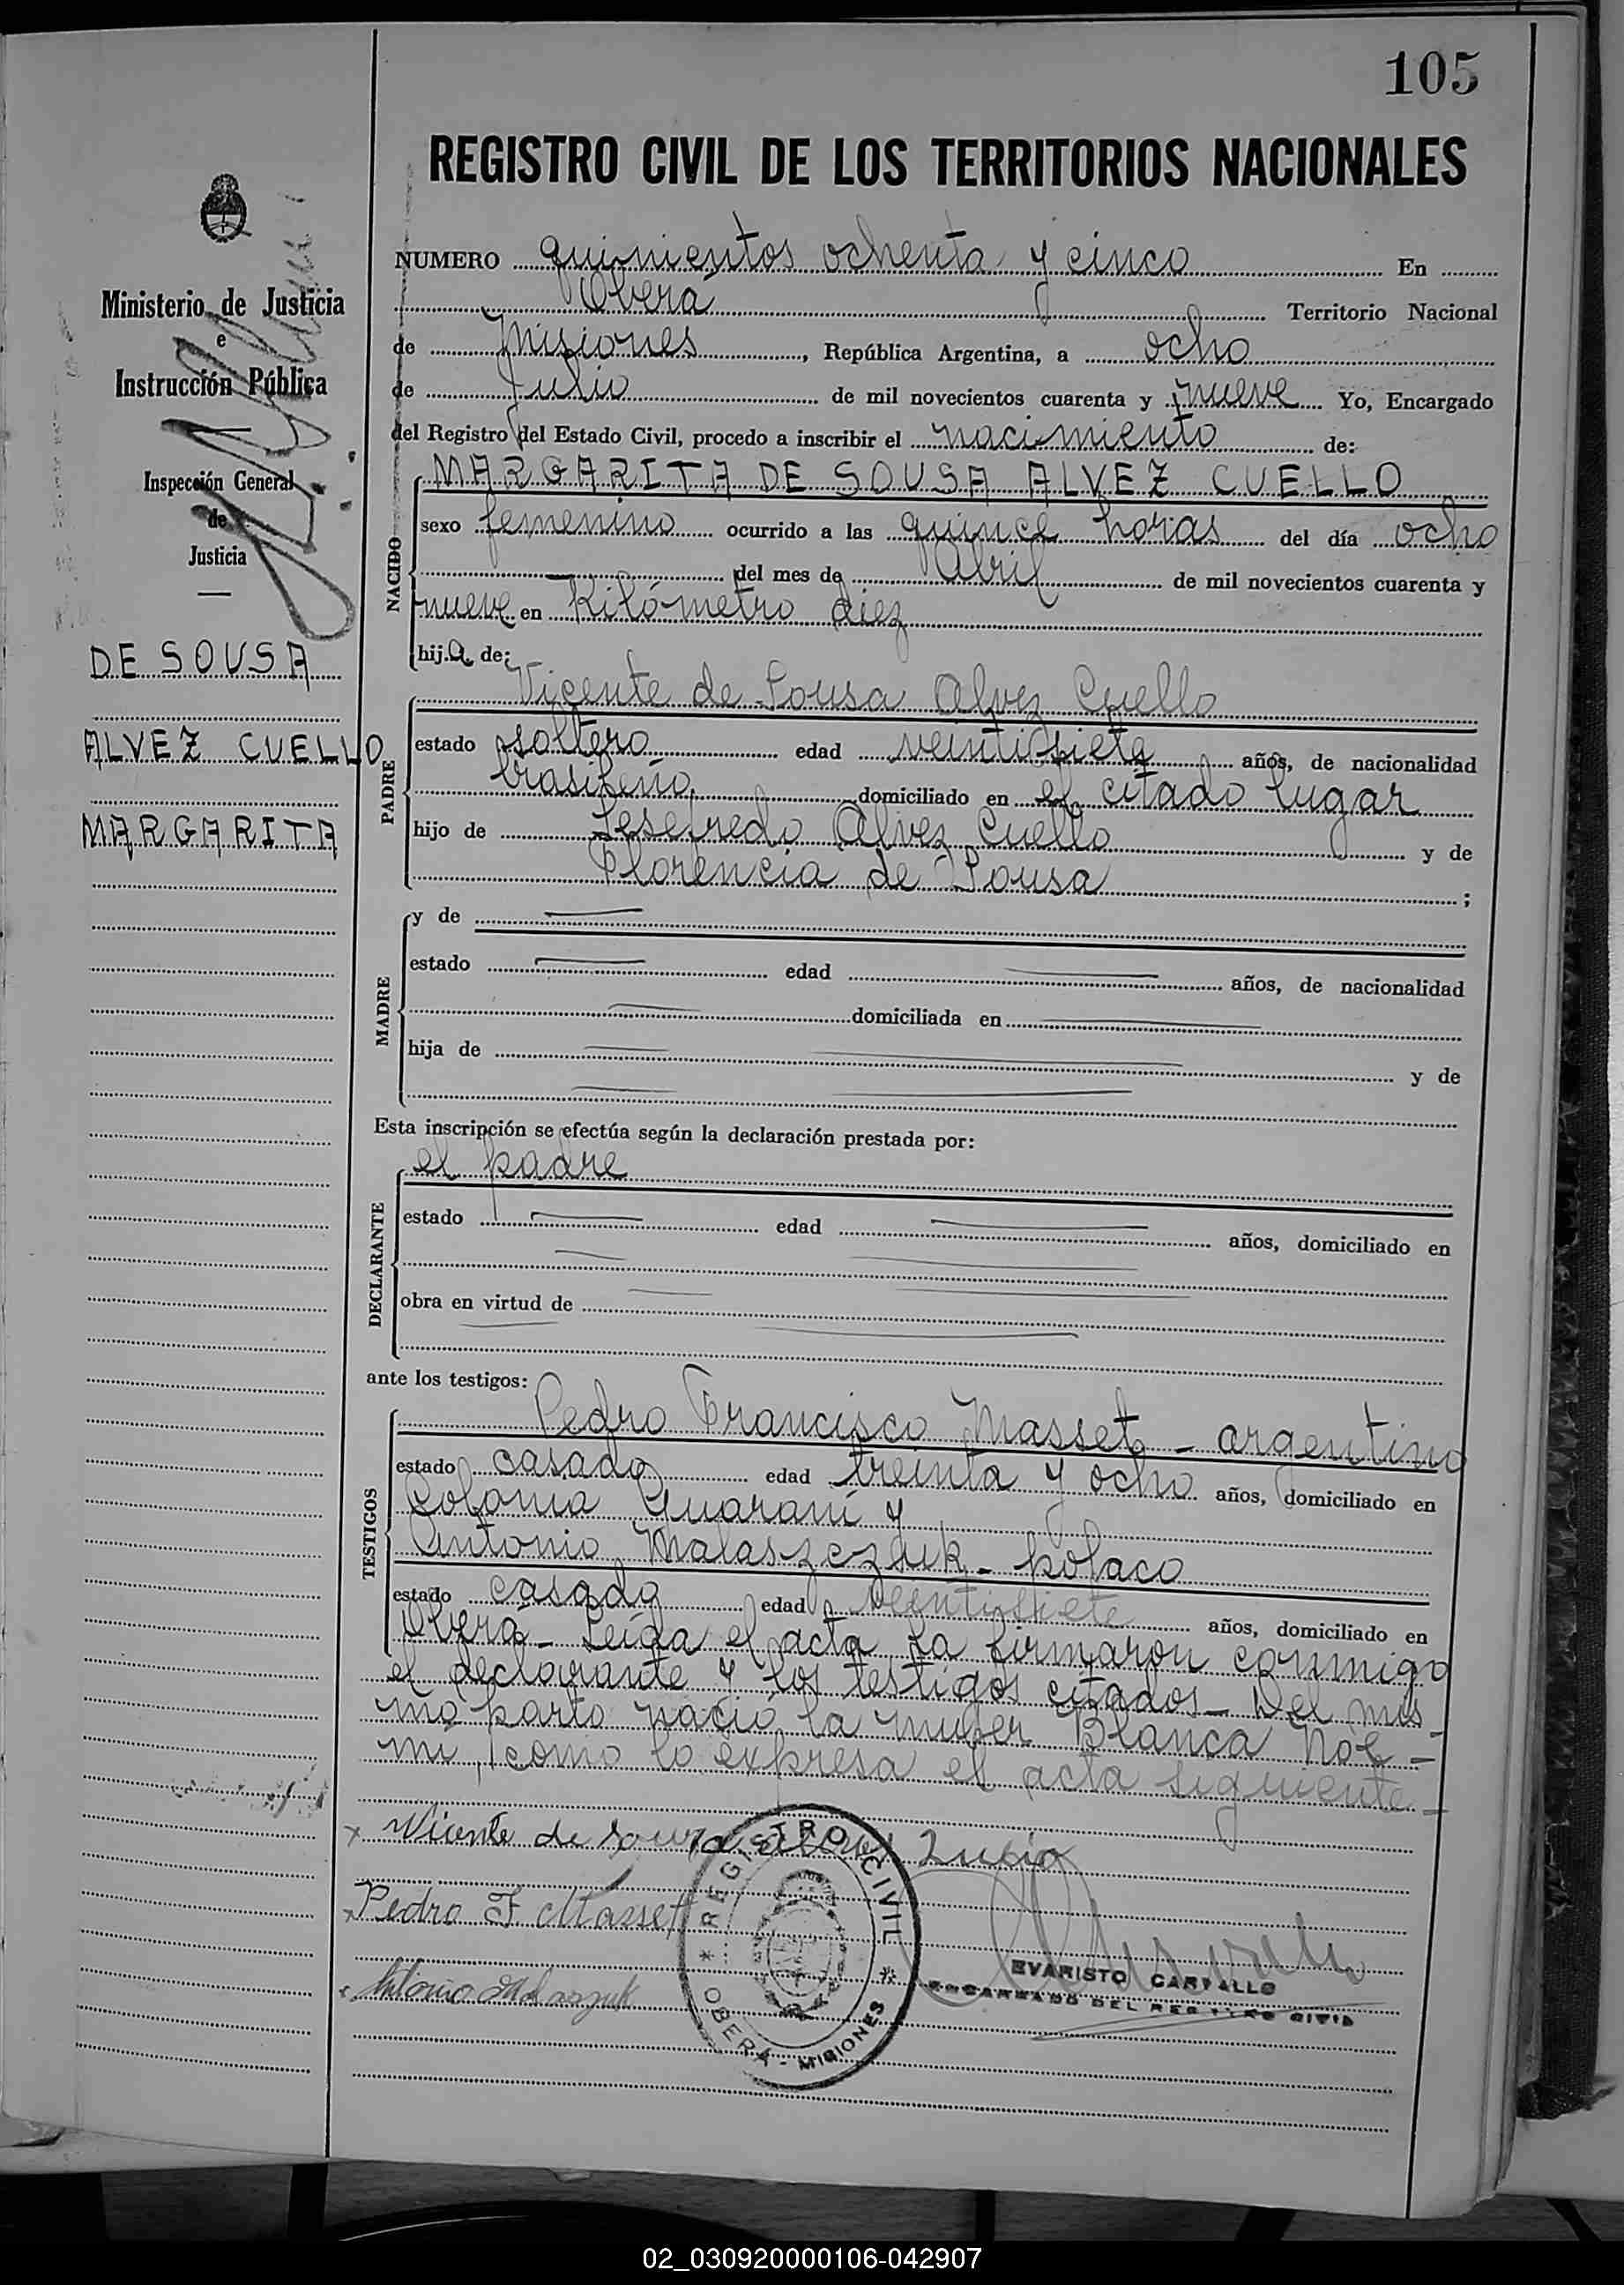 105
REGISTRO CIVIL DE LOS TERRITORIOS NACIONALES
Ministerio de Justicia
e
Instrucción Pública
Inspección General
de
Justicia
DE SOUSA
ALVEZ CUELLO
MARGARITA
NUMERO quinientos ochenta y cinco En
Oberá Territorio Nacional
de Misiones, República Argentina, a ocho
de Julio de mil novecientos cuarenta y nueve Yo, Encargado
del Registro del Estado Civil, procedo a inscribir el nacimiento de:
NACIDO
MARGARITA DE SOUSA ALVEZ CUELLO
sexo femenino ocurrido a las quince horas del día ocho
del mes de Abril de mil novecientos cuarenta y
nueve en Kilómetro diez
hija de:
PADRE
Vicente de Sousa Alvez Cuello
estado soltero edad veintisiete años, de nacionalidad
brasileño, domiciliado en el citado lugar
hijo de Alvez Cuello y de
Florencia de Sousa ;
MADRE
y de
estado edad años, de nacionalidad
domiciliada en
hija de y de
Esta inscripción se efectúa según la declaración prestada por:
DECLARANTE
el padre
estado edad años, domiciliado en
obra en virtud de
ante los testigos:
TESTIGOS
Pedro Francisco Masset - argentino
estado casado edad treinta y ocho años, domiciliado en
Colonia Guaraní y
Antonio Malaszezuk - polaco
estado casado edad veintisiete años, domiciliado en
Oberá - Leída el acta la firmaron conmigo
el declarante y los testigos citados - Del mis-
mo parto nació la mujer Blanca Noe-
mi, como lo expresa el acta siguiente -
Vicente de Souza
Pedro F Masset
Antonio
REGISTRO CIVIL
* OBERÁ - MISIONES *
EVARISTO CARVALLO
ENCARGADO DEL REGISTRO CIVIL
02_030920000106-042907